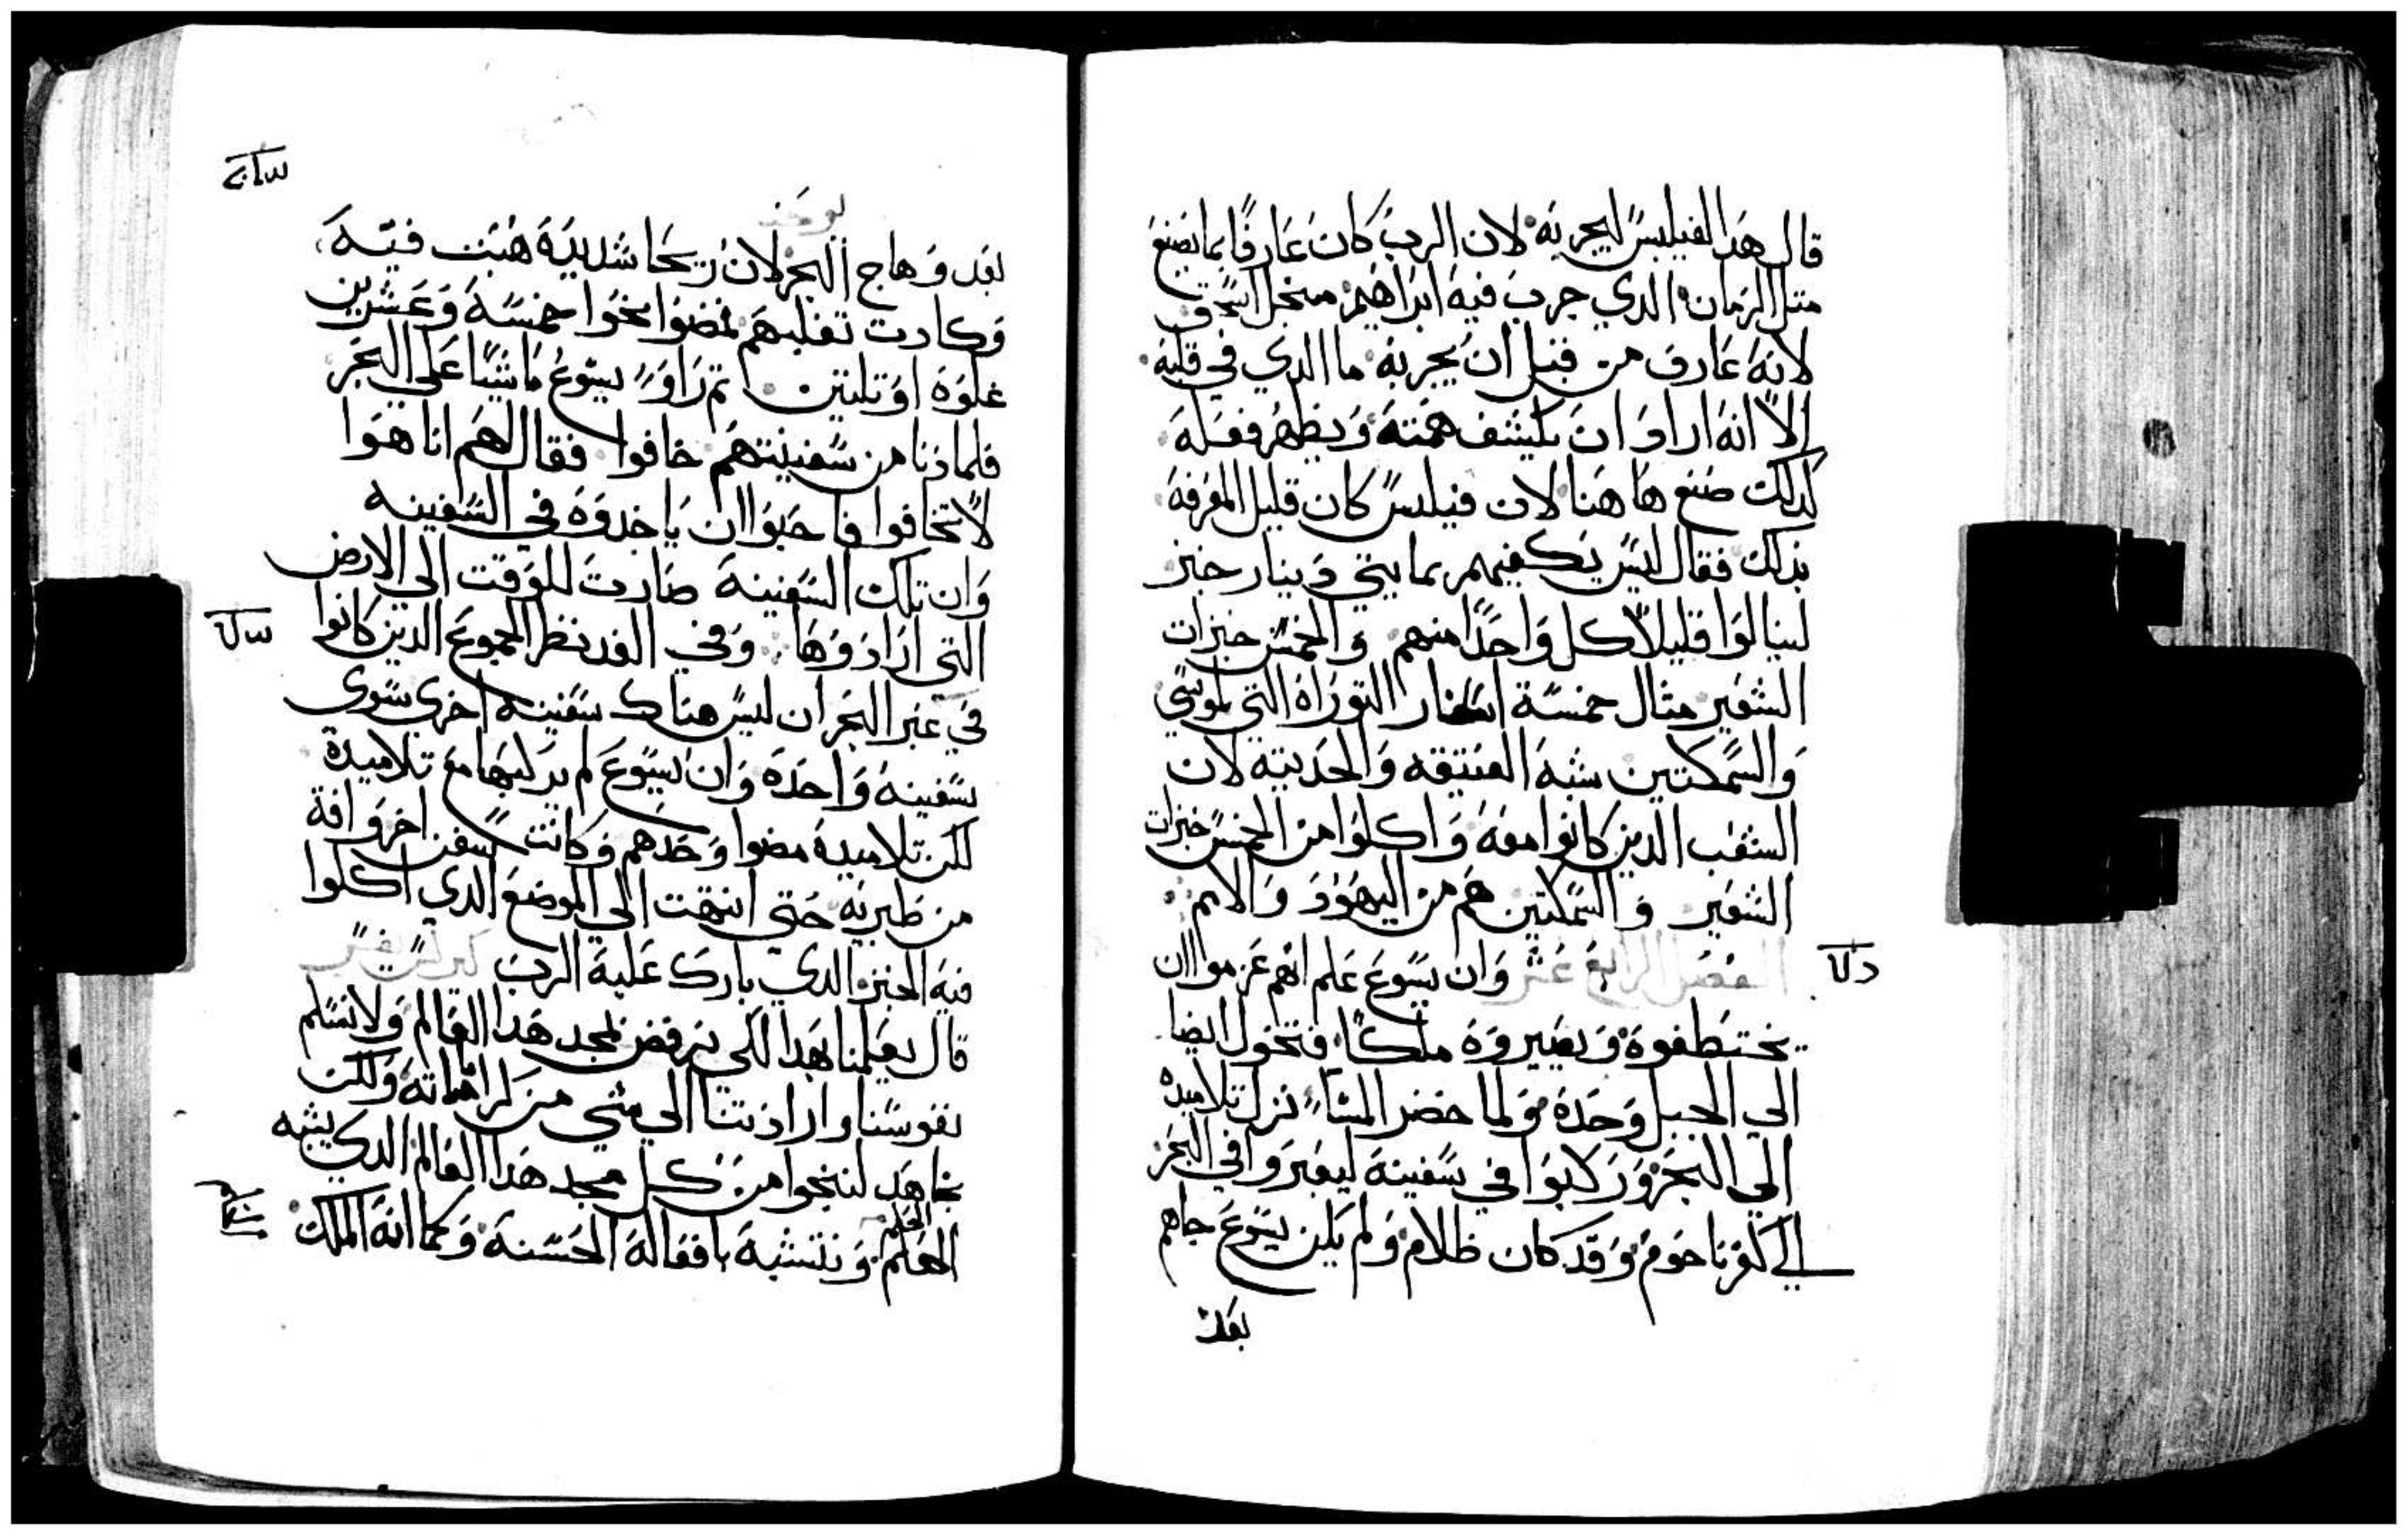 قال هدا لفيلبس ليجربه لان الرب كان عارفا بما يصنع
متل الزمان الدي جرب فيه ابراهيم من اجل اسحق
لانه عارف من قبل ان يجربه ما الدي في قلبه
الا انه اراد ان يكشف همته ويظهر فعله
كدلك صنع هاهنا لان فيلبس كان قليل المعرفه
بدلك فقال ليس يكفيهم بمايتي دينار خبز
لينالوا قليلا كل واحدا منهم والخمس خبزات
الشعير متال خمسة اسفار التوراه التي لموسي
والسمكتين شبه العتيقه والحديته لان
الشعب الدين كانوا معه واكلوا من الخمس خبزات
الشعير والسمكتين هم من اليهود والامم
الفصل الرابع عشر وان يسوع علم انهم عزموا ان
يختطفوه ويصيروه ملكا فتحول ايضا
الي الجبل وحده ولما حضر المسا نزل تلاميده
الي البحر وركبوا في سفينة ليعبروا في البحر
الي كفرناحوم وقد كان ظلام ولم يكن يسوع جاهم
بعد
يوحنا
بعد وهاج البحر لان ريحا شديدة هبت فيه
وكادت تقلبهم فمضوا نحوا خمسة وعشرين
غلوه او تلتين تم راوا يسوع ماشيا علي البحر
فلما دنا من سفينتهم خافوا فقال لهم انا هوا
لا تخافوا فاحبوا ان ياخدوه في السفينه
وان تلك السفينة صارت للوقت الي الارض
التي ارادوها وفي الغد نظر الجموع الدين كانوا
في عبر البحر ان ليس هناك سفينه اخري سوي
سفينه واحده وان يسوع لم يركبها مع تلاميدة
لكن تلاميده مضوا وحدهم وكانت سفن اخر وافة
من طبريه حتي انتهت الي الموضع الدي اكلوا
فيه الخبز الدي بارك عليه الرب كيرلس يفسر
قال يعلمنا بهدا لكي نرفض لمجد هدا العالم ولا نسلم
نفوسنا وارادتنا الي شي من كراماته ولكن
نجاهد لننجوا من كل مجد هدا العالم الدي يشبه
الحلم
ونتشبه بافعاله الحسنة وكما انه الملك